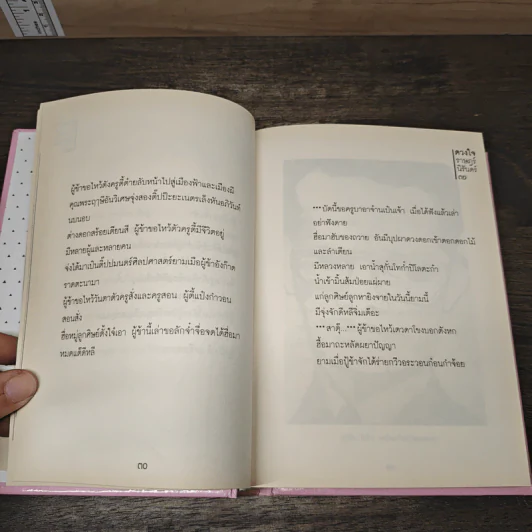 ผู้ข้าขอไหว้ดังครูตี้ต๋ายลับหน้าไปสู่เมืองฟ้าและเมืองผี
คุณพระฤาษีอันวิเศษจุ่งสองตี้ปปิ๊ะยะเนตรเล็งหันอภิวันท์
นบนอบ
ต่างดอกสร้อยเตียนสี ผู้ข้าขอไหว้ตัวครูตี้มีชีวิตอยู่
มีหลายผู้และหลายคน
จ่งได้มาเป็นตี้ปปมนตร์ศิลปศาสตร์ยามเมื่อผู้ข้ายังก๊าด
ราตะนามา
ผู้ข้าขอไหว้วันตาตัวครูสั่งและครูสอน ผู้ตี้แป๋งกำวอน
สอนสั่ง
ฮื่อหมู่ลูกศิษย์ตั้งใจ๋เอา ผู้ข้านี้เล่าขอลักจำจื่อจดได้ฮื่อมา
หมดแต๊ดีหลี
๓๐
ดวงใจ
ราษฎร์
นิรันดร์
๓๑
***บัดนี้ขอครูบาอาจ๋านเป็นเจ้า เมื่อได้ฟังแล้วเล่า
อย่าฟังดาย
ฮื่อมาฮับของถวาย อันมีบุปผาดวงดอกเข้าตอกดอกไม้
และลำเตียน
มีหลวงหลาย เอาน้ำสุกั๋นโทกำปิโลตะก๋า
น้ำเข้ามิ้นส้มป่อยแผ่ผาย
แก่ลูกศิษย์ลูกหายิงจายในวันนี้ยามนี้
มีจุ่งจักดีหลีจิ่มเต๊อะ
***สาตุ๊...***ผู้ข้าขอไหว้เตวดาโขงบอกดังหก
ฮื้อมาถะหลัดผยาปัญญา
ยามเมื่อปู่ข้าจักได้ร่ายกวีวอระวอนก๋อนกำจ้อย